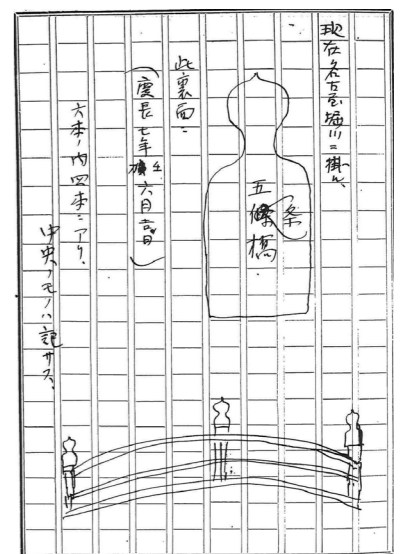 現在名古屋堀川ニ掛ル、
五條橋
条
此裏面ニ
(慶長七年壬六月吉日)
六本ノ内四本ニアリ、
中央ノモノハ記サス、